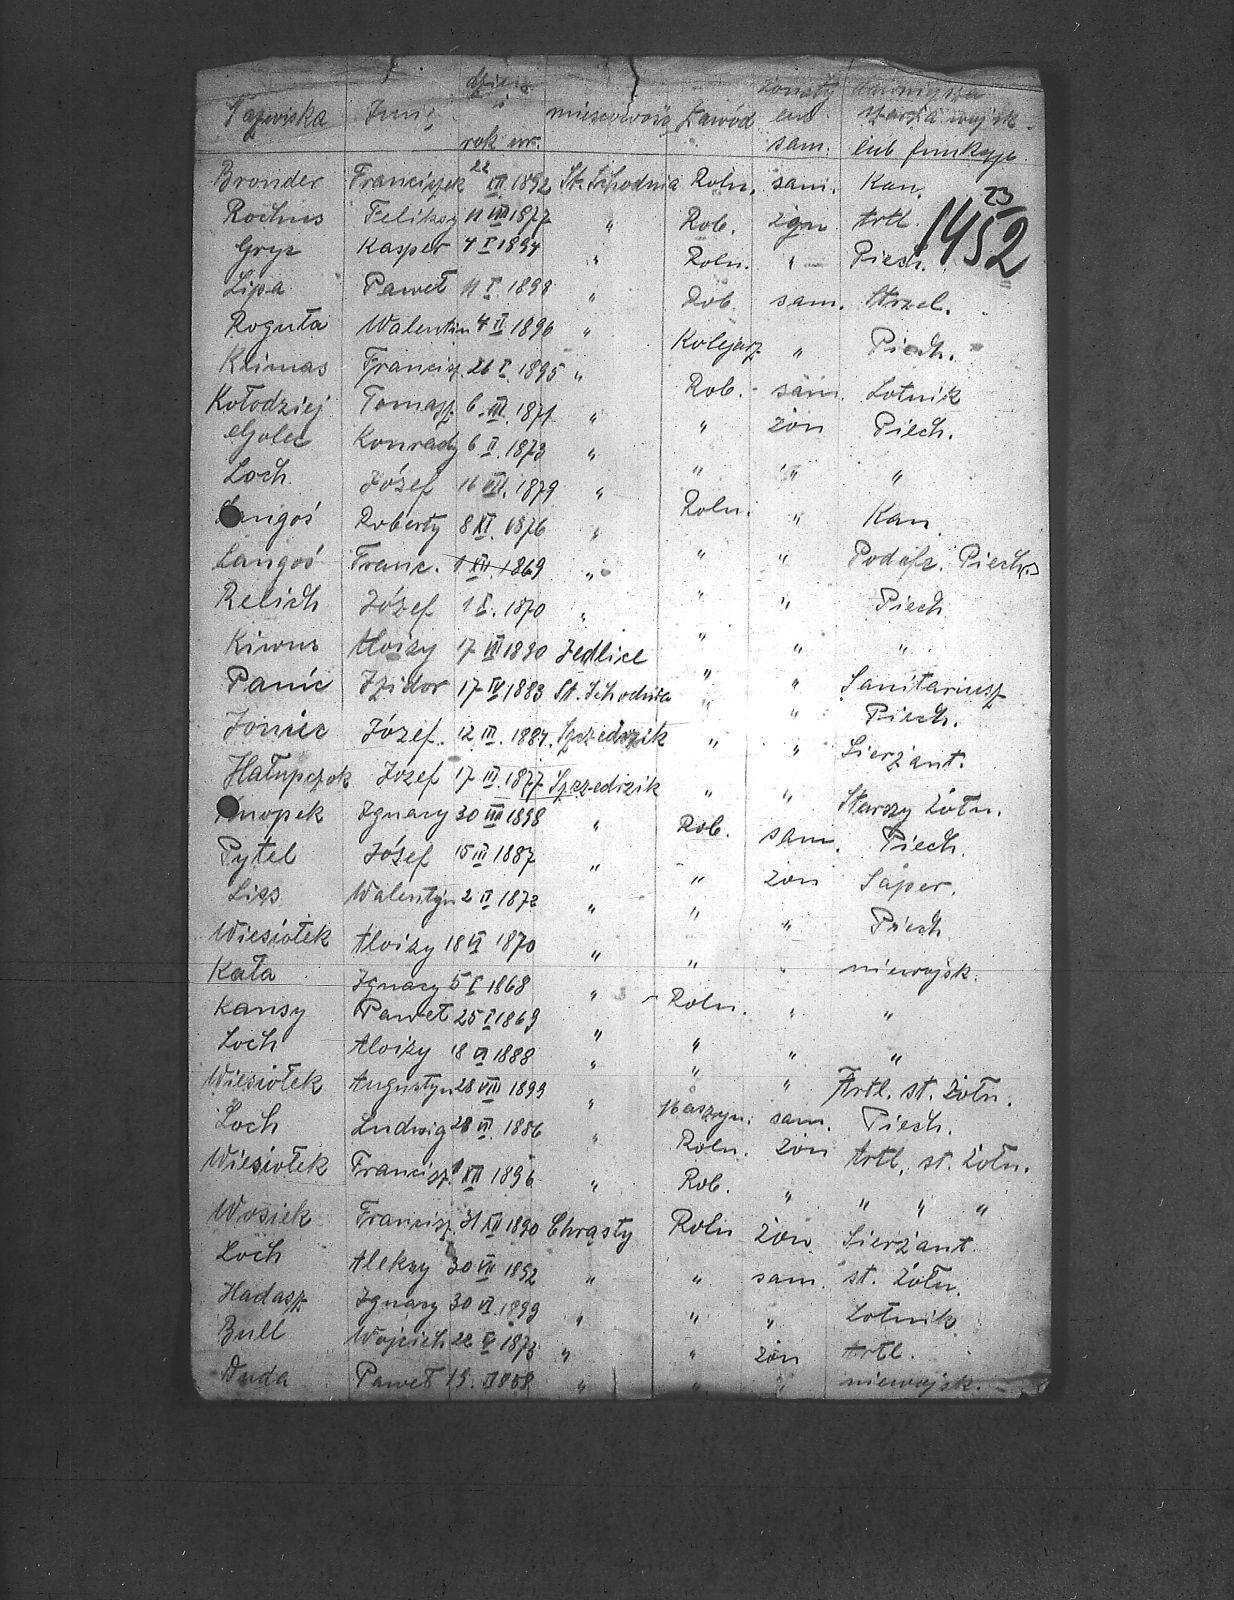 Nazwiska Imię dzień i rok ur. miescowość Zawód żonaty lub sam. szarża wojsk. lub funkcje.
23
1452
Bronder Franciszek 22 XII. 1892 St. Schodnia Roln. sam. Kan.
Rochus Feliksy 11 VIII 1877 " Rob. żon Artl.
Gryz Kasper 4 I 1894 " Roln. " Piech.
Lipa Paweł 11 I. 1898 " Rob sam. Strzel.
Roguła Walentin 4 II 1896 " Kolejarz " Piech.
Klimas Francisz. 26 I. 1895 " Rob. sam. Lotnik
Kołodziej Tomasz. 6. III. 1871 " " żon Piech.
Golec Konrady 6 II. 1873 " " " "
Loch Józef 16 VII. 1879 " Roln. " Kan.
Langoś Roberty 8 XI. 1876 " " " Podofz. Piech.
Langoś Franc. 1 XII. 1869 " " " Piech
Relich Józef 1 I. 1870 " " " "
Kiwus Aloizy 17 VII 1890 Jedlice " " Sanitariusz
Panic Izidor 17 IV 1883 St. Schodnia " " Piech.
Joniec Józef. 12 III. 1884. Szczedrzik " " Sierżant.
Hałupczok Jozef 17 III. 1877 Szczedrzik " " Starszy Żołn.
nopek Ignacy 30 VIII 1898 " Rob. sam. Piech.
Pytel Józef 15 III 1887 " " żon Saper.
Liss Walentyn 2 II 1872 " " " Piech
Wiesiołek Aloizy 18 VI 1870 " " " niewojsk.
Kała Ignacy 5 I 1868 " Roln. " "
Kansy Paweł 25 I 1869 " " " "
Loch Aloizy 18 VI 1888 " " " Artl. st. Żołn.
Wiesiołek Augustyn 28 VIII 1899 " maszyn. sam. Piech.
Loch Ludwig 28 VI. 1886 " Roln. żon Artl. st. Żołn.
Wiesiołek Francisz. 1 XII 1896 " Rob. " " " "
Wosiek Francisz. 31 XII 1890 Chrąsty Roln żon. Sierżant.
Loch Aleksy 30 VII 1892 " " sam. st. Żołn.
Hadasz Ignacy 30 VI. 1899 " " " Lotnik
Bull Wojciech 22 V 1873 " " żon Artl.
Duda Paweł 15. II 1868 " " " niewojsk.